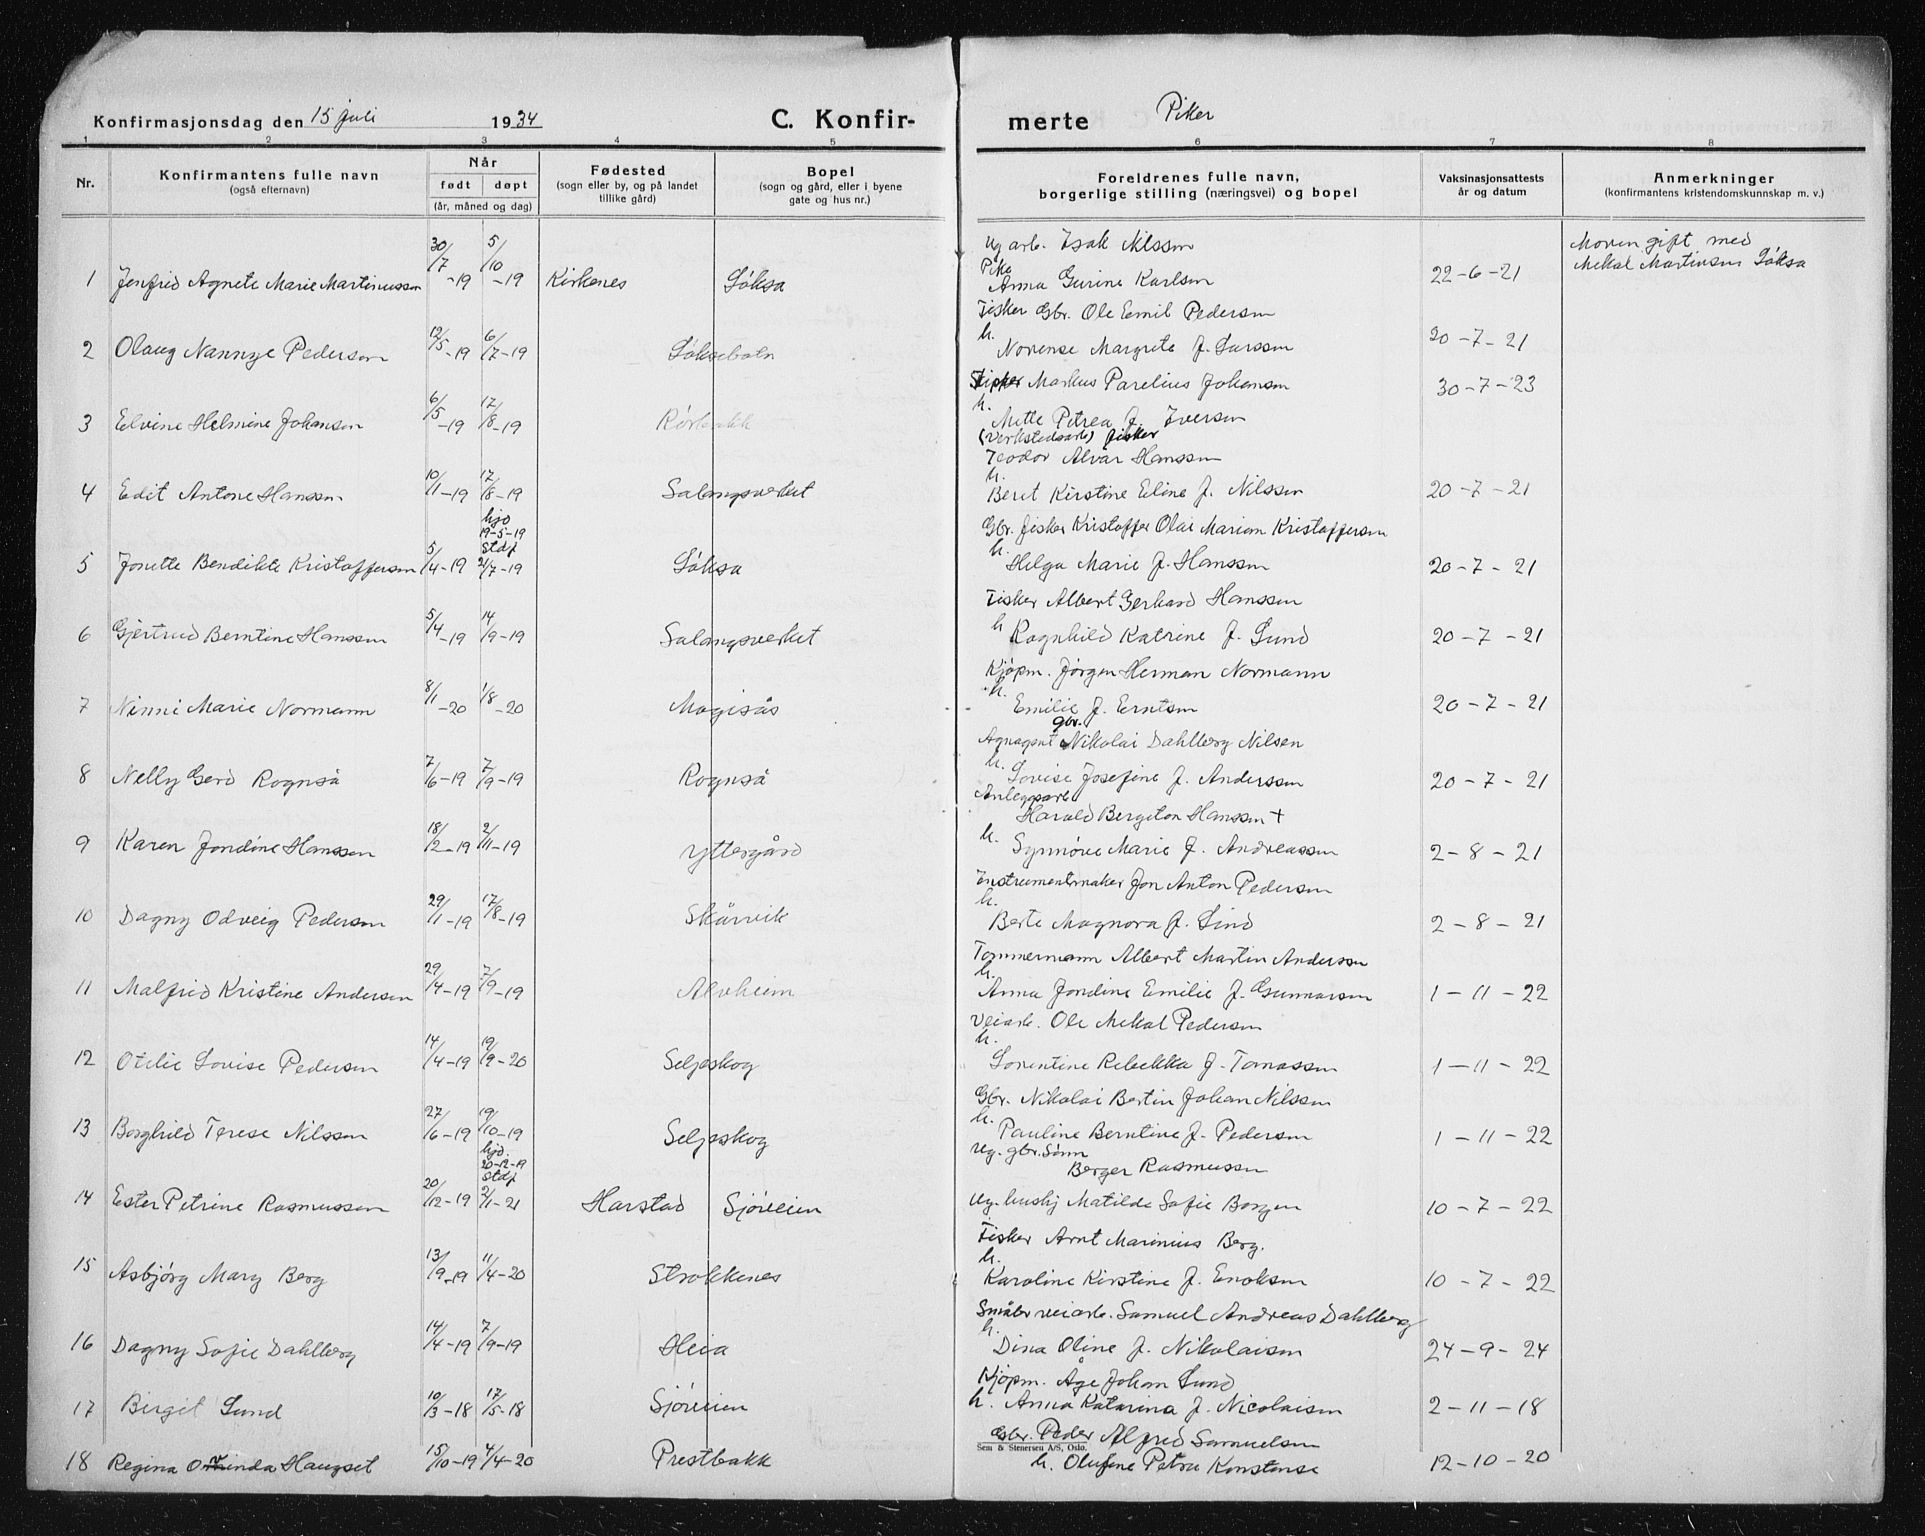 Konfirmasjonsdag den 15 juli 1934 C. Konfir-
merte Piker
1 2 3 4 5 6 7 8
Nr.
Konfirmantens fulle navn
(også efternavn)
Når
født døpt
(år, måned og dag)
Fødested
(sogn eller by, og på landet
tillike gård)
Bopel
(sogn og gård, eller i byene
gate og hus nr.)
Foreldrenes fulle navn,
borgerlige stilling (næringsvei) og bopel
Vaksinasjonsattests
år og datum
Anmerkninger
(konfirmantens kristendomskunnskap m. v.)
Ug arb. Isak Nilssen
Moren gift med
Mekal Martinsen Løksa
1 Jenfrid Agnete Marie Martinussen 30/7-19 5/10-19 Kirkenes Løksa Pike Anna Gurine Karlsen 22-6-21
Fisker Gbr. Ole Emil Pedersen
2 Olaug Nannye Pedersen 12/5-19 6/7-19 Løksebotn h. Norense Margrete f. Larssen 20-7-21
Markus Parelius Johansen 30-7-23
3 Elvine Helmine Johansen 6/5-19 17/8-19 Rørbakk h. Mette Petrea f. Iversen
(Verkstedsarb) fisker
Teodor Alvar Hanssen
4 Edit Antone Hanssen 10/1-19 17/8-19 Salangsverket h. Beret Kirstine Eline f. Nilssen 20-7-21
Gbr. fisker Kristoffer Olai Mariam Kristoffersen
5 Jonette Bendikte Kristoffersen 5/4-19 hjd 19-5-19 stdf 2/7-19 Løksa h. Helga Marie f. Hanssen 20-7-21
Fisker Albert Gerhard Hanssen
6 Gjertrud Berntine Hanssen 5/4-19 14/9-19 Salangsverket h Ragnhild Katrine f. Lund 20-7-21
Kjøpm. Jørgen Herman Normann
7 Ninni Marie Normann 8/1-20 1/8-20 Magisås h. Emilie f. Erntsen 20-7-21
Agnagent gbr. Nikolai Dahlberg Nilsen
8 Nelly Gerd Rognså 7/6-19 7/9-19 Rognså h. Lovise Josefine f. Anderssen 20-7-21
Anleggsarb Harald Bergiton Hanssen +
9 Karen Jondine Hanssen 18/2-19 2/11-19 Yttergård h. Synnøve Marie f. Andreassen 2-8-21
Instrumentmaker Jon Anton Pedersen
10 Dagny Odveig Pedersen 29/1-19 17/8-19 Skårvik h. Berte Magnora f. Lind 2-8-21
Tømmermann Albert Martin Anderssen
11 Malfrid Kristine Andersen 29/4-19 7/9-19 Alvheim h. Anna Jondine Emilie f. Gunnarsen 1-11-22
Veiarb. Ole Mekal Pedersen
12 Otelie Lovise Pedersen 14/4-19 19/9-20 Seljeskog h. Lorentine Rebekka f. Tomassen 1-11-22
Gbr. Nikolai Bertin Johan Nilssen
13 Borghild Terese Nilssen 27/6-19 19/10-19 Seljeskog h. Pauline Berntine f. Pedersen 1-11-22
Ug. gbr. sønn
Berger Rasmussen
14 Ester Petrine Rasmussen 20/12-19 hjd. 20-12-19 stdf 2/1-21 Harstad Sjøveien Ug. hushj Matilde Sofie Borgen 10-7-22
Fisker Arnt Marinius Berg.
15 Asbjørg Mary Berg 13/9-19 11/4-20 Strokkenes h. Karoline Kirstine f. Enoksen 10-7-22
Småbr veiarb. Samuel Andreas Dahlberg
16 Dagny Sofie Dahlberg 14/4-19 7/9-19 Heia h. Dina Oline f. Nikolaisen 24-9-24
Kjøpm. Åge Johan Lund
17 Birgit Lund 10/3-18 17/5-18 Sjøveien h. Anna Katarina f. Nicolaisen 2-11-18
Gbr. Peder Alfred Samuelsen
Sem & Stenersen A/S, Oslo.
18 Regina Haugset 15/10-19 4/4-20 Prestbakk h. Olufine Petra Konstanse 12-10-20